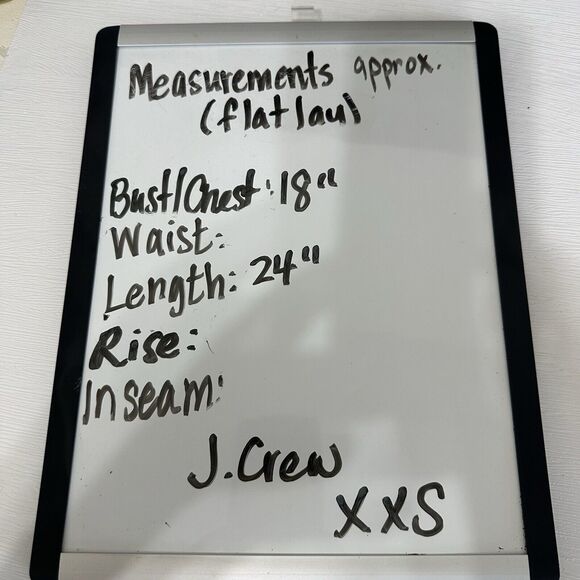 Measurements approx.
(flat lay)
Bust/Chest: 18"
Waist:
Length: 24"
Rise:
Inseam:
J.Crew
XXS